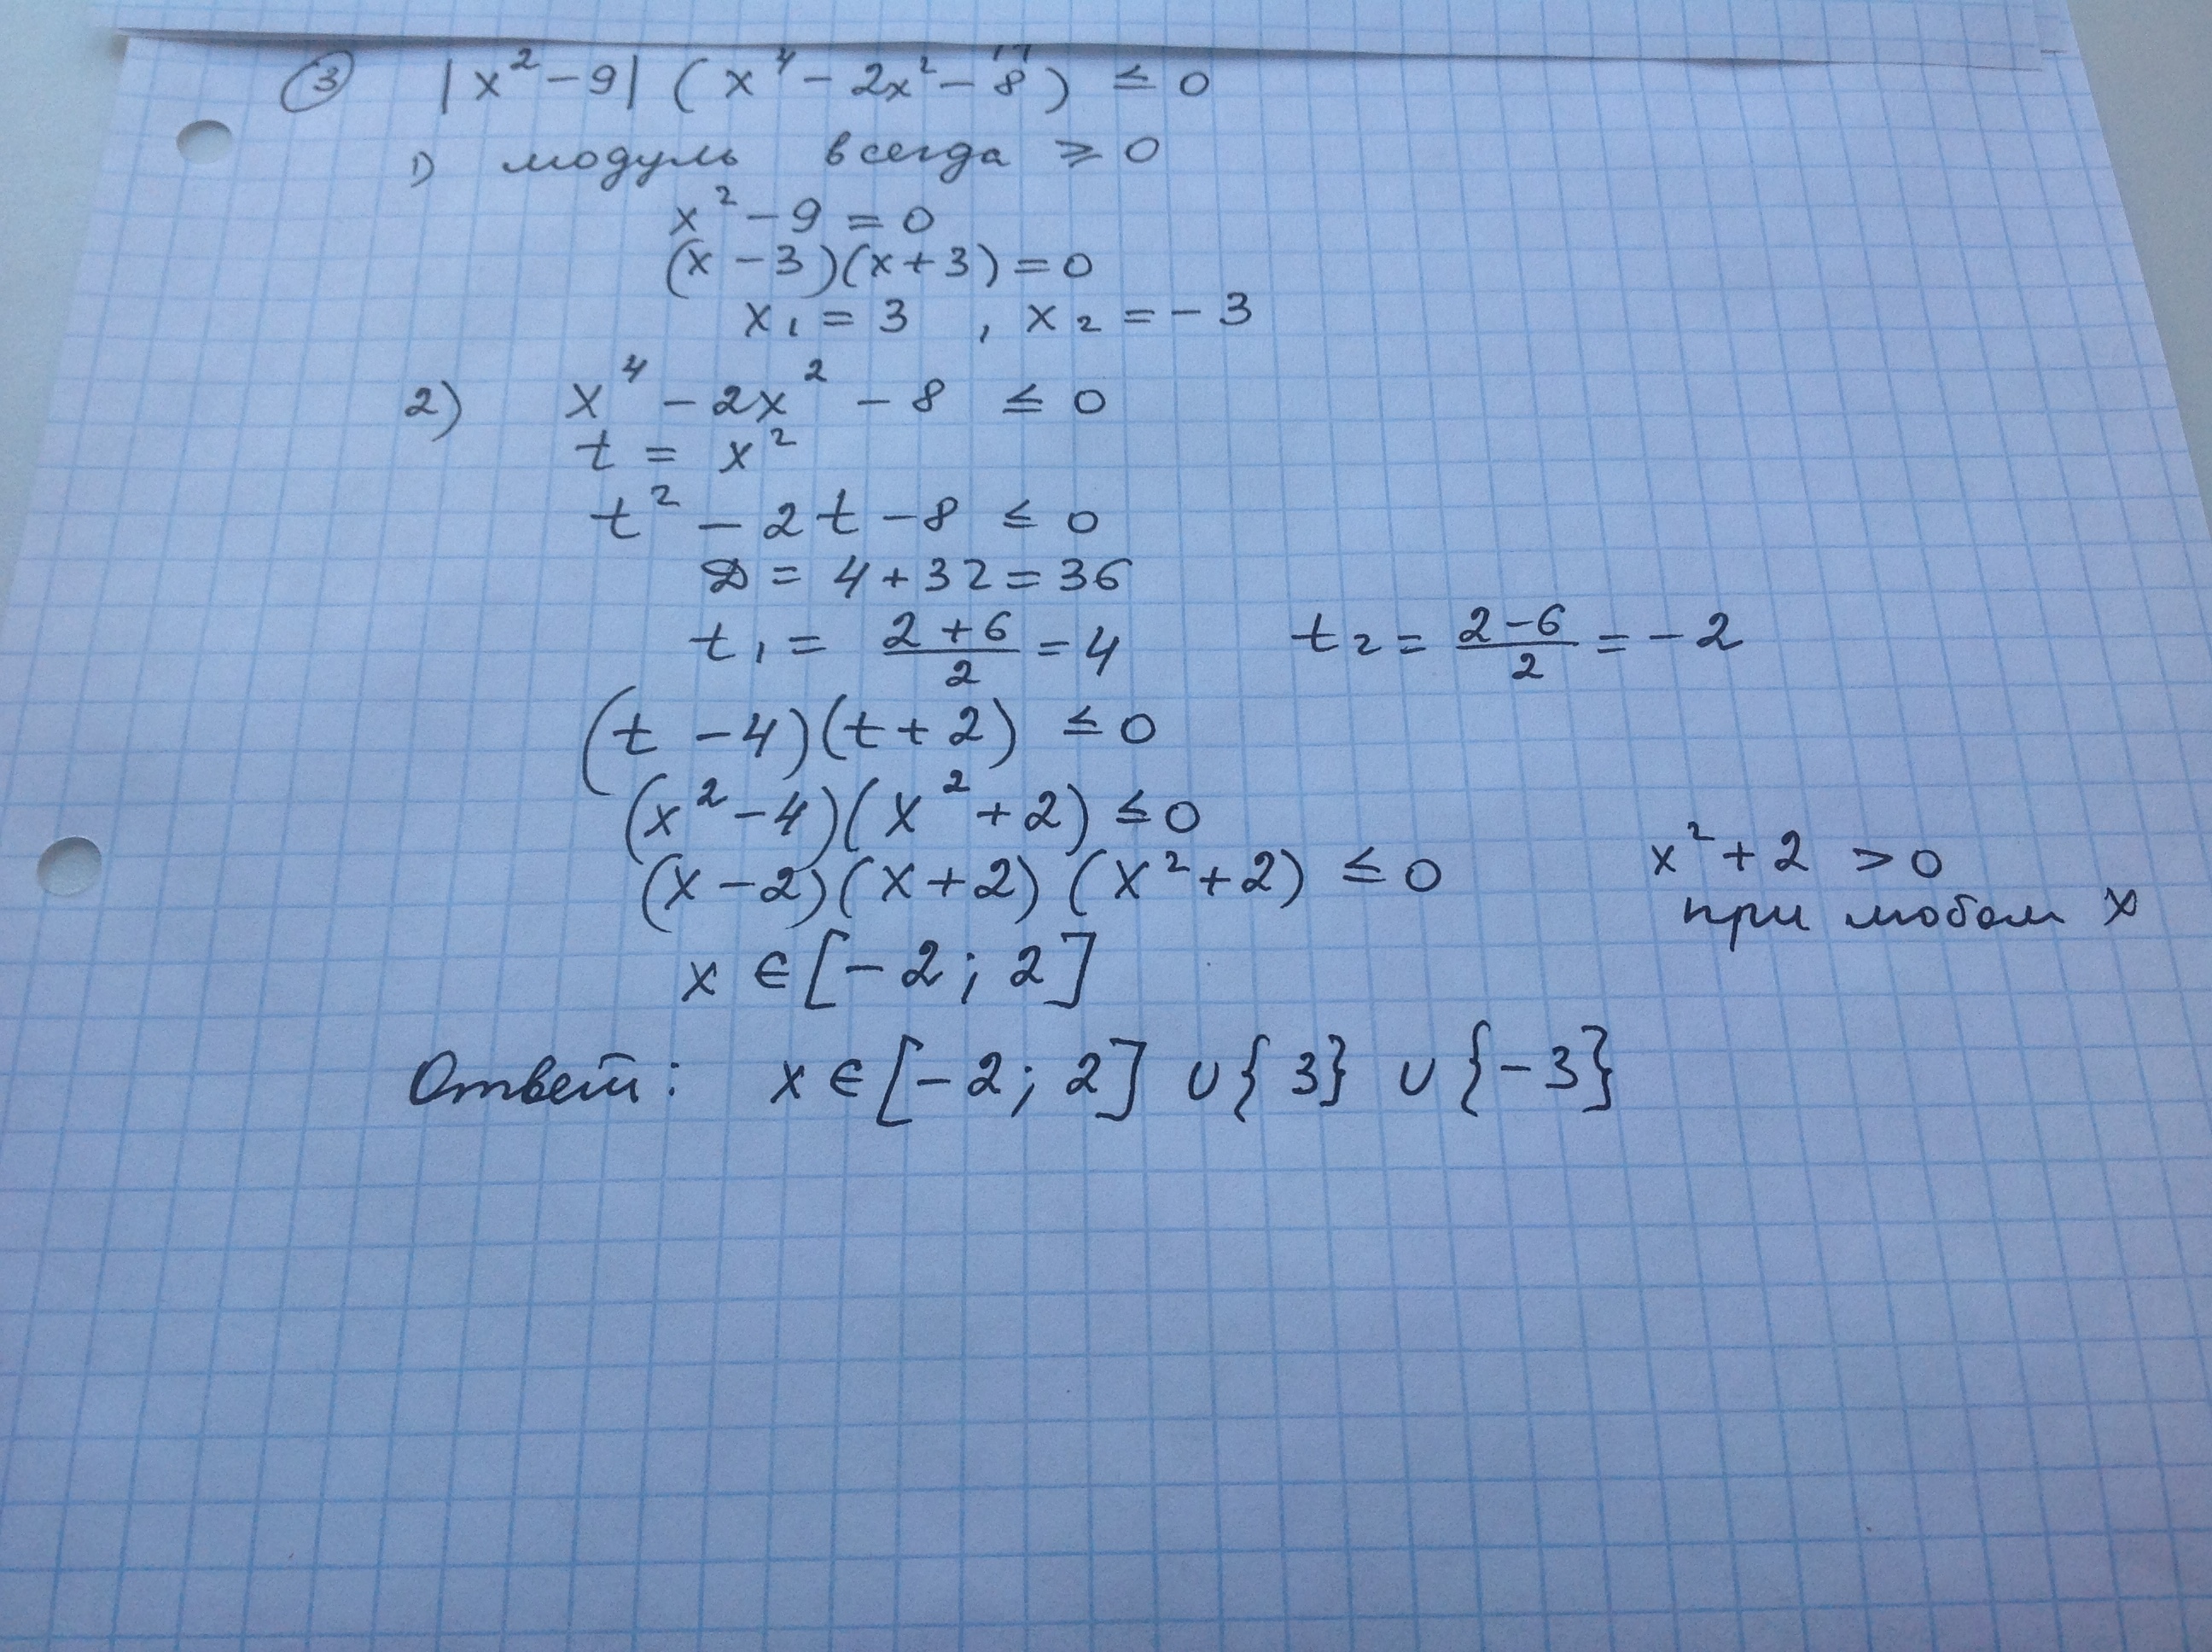 ③ |x² - 9| (x⁴ - 2x² - 8) ≤ 0
1) модуль всегда ≥ 0
x² - 9 = 0
(x - 3)(x + 3) = 0
x₁ = 3 , x₂ = - 3
2) x⁴ - 2x² - 8 ≤ 0
t = x²
t² - 2t - 8 ≤ 0
D = 4 + 32 = 36
t₁ = (2 + 6)/2 = 4 t₂ = (2 - 6)/2 = - 2
(t - 4)(t + 2) ≤ 0
(x² - 4)(x² + 2) ≤ 0
(x - 2)(x + 2)(x² + 2) ≤ 0 x² + 2 > 0
при любом x
x ∈ [- 2 ; 2]
Ответ: x ∈ [- 2 ; 2] ∪ {3} ∪ {- 3}